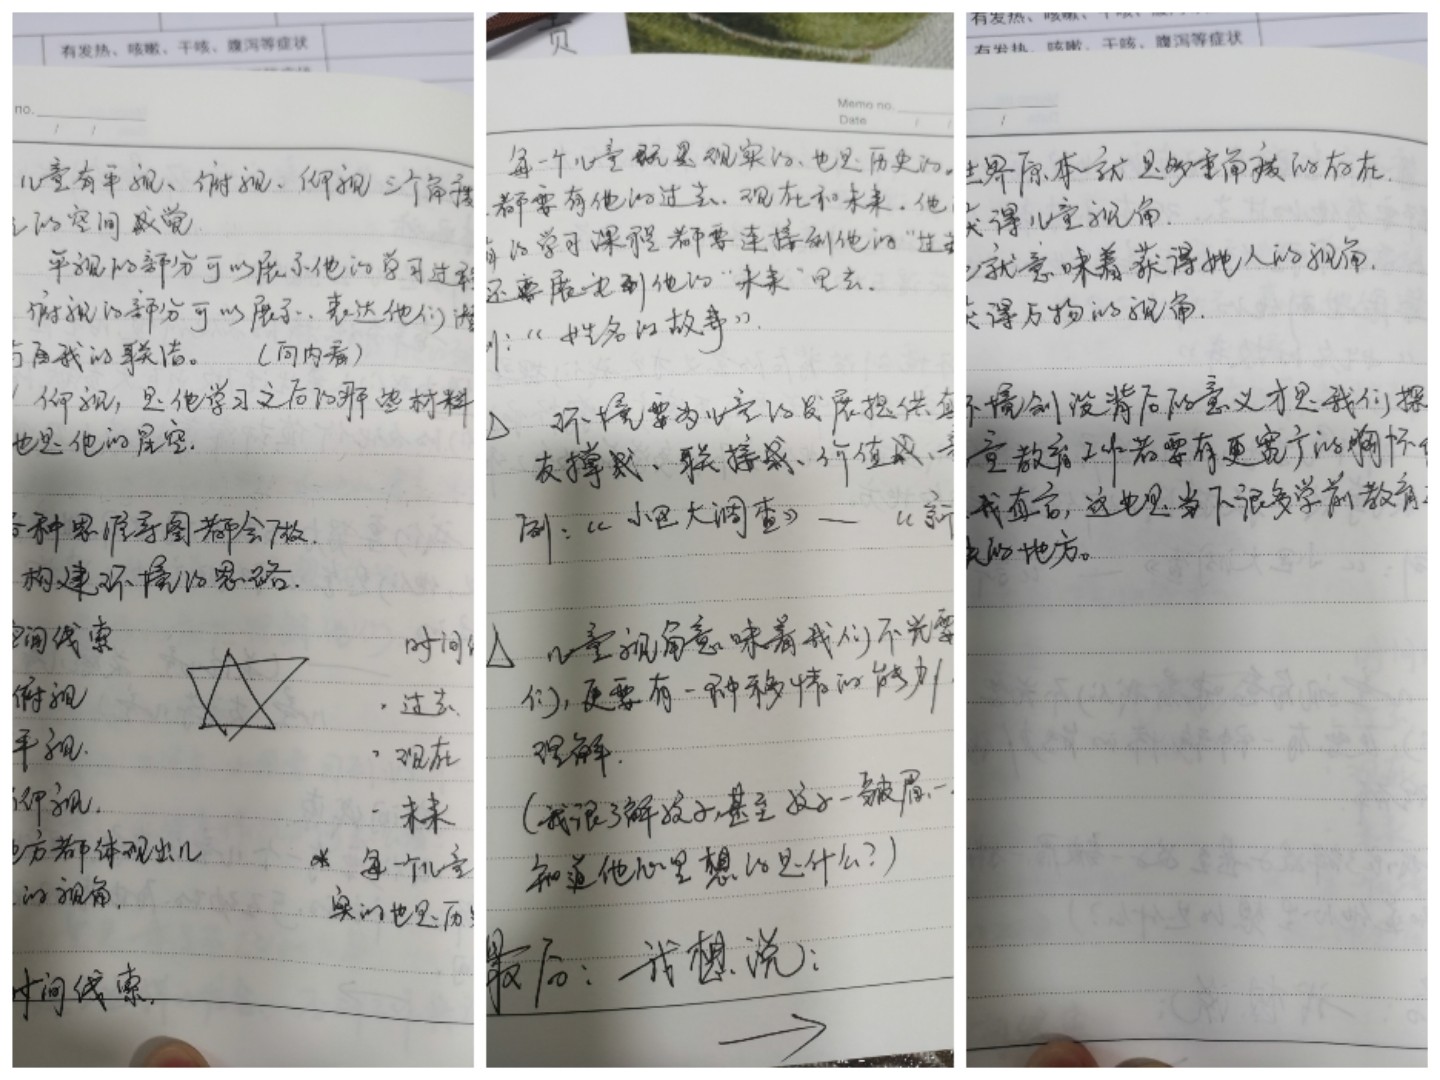 有发热、咳嗽、干咳、腹泻等症状
no.
/ /
儿童有平视、俯视、仰视三个角
的空间感觉.
平视的部分可以展示他的学习过程
俯视的部分可以展示、表达他们
自我的联结。 (向内看)
仰视,是他学习之后的那些材料
也是他的星空.
各种思维导图都会做.
构建环境的思路.
空间线索
时间
俯视
·过去
平视.
·现在
仰视.
·未来
方都体现出儿
的视角.
* 每一个儿童
实的也是历史
时间线索.
页
Memo no.
Date / /
每一个儿童既是现实的、也是历史的。
都要有他的过去、现在和未来.他
的学习课程都要连接到他的“过去
还要展望到他的“未来”里去.
例:《姓名的故事》.
△ 环境要为儿童的发展提供
支撑感、联接感、价值感、
例:《小区大调查》—《新
△ 儿童视角意味着我们不光要
们,更要有一种移情的能力
理解.
(我很了解孩子,甚至孩子一皱眉、
知道他心里想的是什么?)
最后:我想说:
→
有发热、咳嗽、干咳、腹泻等症状
有发热、咳嗽、干咳、腹泻等症状
/
世界原本就是多重角度的存在.
获得儿童视角.
就意味着获得她人的视角.
获得万物的视角.
环境创设背后的意义才是我们探
童教育工作者要有更宽广的胸怀
我直言,这也是当下很多学前教育
的地方。